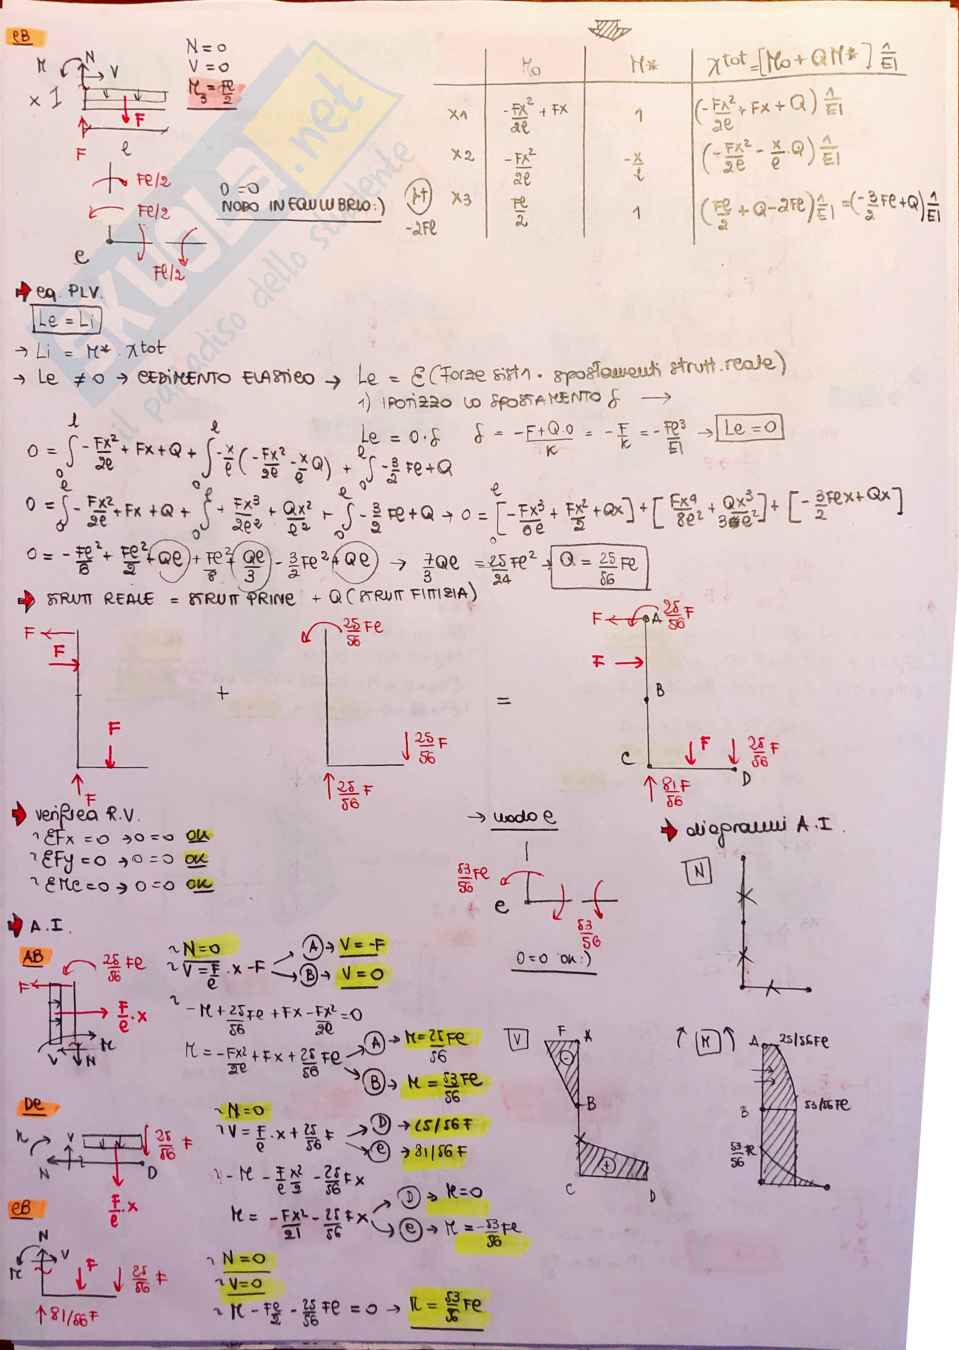 CB
N
M
V
x
F
F
l
N=0
V=0
M3 = Fl/2
Fl/2
Fl/2
C
Fl/2
0=0
NODO IN EQUILIBRIO:)
M0 | M* | χtot=[M0+QM*] 1/EI
x1 | -Fx²/2l + Fx | 1 | (-Fx²/2l + Fx + Q) 1/EI
x2 | -Fx²/2l | -x/l | (-Fx²/2l - x/l · Q) 1/EI
x3 | Fl/2 | 1 | (Fl/2 + Q - 2Fl) 1/EI = (-3/2 Fl + Q) 1/EI
-2Fl
eq. PLV.
Le = Li
→ Li = M* · χtot
→ Le ≠ 0 → CEDIMENTO ELASTICO → Le = Σ(Forze sist1 · spostamenti strutt. reale)
1) IPOTIZZO LO SPOSTAMENTO δ →
Le = 0·δ δ = -F+Q·0/K = -F/K = -Fl³/EI → Le = 0
0 = ∫ -Fx²/2l + Fx + Q + ∫ -x/l (-Fx²/2l - x/l Q) + ∫ -3/2 Fl + Q
0 = ∫ -Fx²/2l + Fx + Q + ∫ +Fx³/2l² + Qx²/l² + ∫ -3/2 Fl + Q → 0 = [-Fx³/6l + Fx²/2 + Qx] + [Fx⁴/8l² + Qx³/3l²] + [-3/2 Flx + Qx]
0 = -Fl²/6 + Fl²/2 + Ql + Fl²/8 + Ql/3 - 3/2 Fl² + Ql → 7/3 Ql = 25/24 Fl² → Q = 25/56 Fl
STRUTT REALE = STRUTT PRINC + Q (STRUTT FITTIZIA)
F
F
F
F
+
25/56 Fl
25/56 F
25/56 F
=
F
A
25/56 F
F
B
C
F
25/56 F
81/56 F
D
verifica R.V.
~ ΣFx = 0 → 0=0 OK
~ ΣFy = 0 → 0=0 OK
~ ΣMC = 0 → 0=0 OK
→ nodo C
53/56 Fl
C
53/56
0=0 OK:)
diagrammi A.I.
N
A.I.
AB
25/56 Fl
F
F/l · x
V
N
M
~ N=0
~ V = F/l · x - F
A → V = -F
B → V = 0
~ -M + 25/56 Fl + Fx - Fx²/2l = 0
M = -Fx²/2l + Fx + 25/56 Fl
A → M = 25/56 Fl
B → M = 53/56 Fl
V
F
A
B
C
D
M
A
25/56 Fl
B
53/56 Fl
53/56 Fl
DC
M
V
N
25/56 F
D
F/l · x
~ N=0
~ V = F/l · x + 25/56 F
D → 25/56 F
C → 81/56 F
~ -M - F/l x²/2 - 25/56 Fx
M = -Fx²/2l - 25/56 Fx
D → M=0
C → M = -53/56 Fl
CB
N
V
M
F
25/56 F
81/56 F
~ N=0
~ V=0
~ M - Fl/2 - 25/56 Fl = 0 → M = 53/56 Fl
SKUOLA.net
il paradiso dello studente